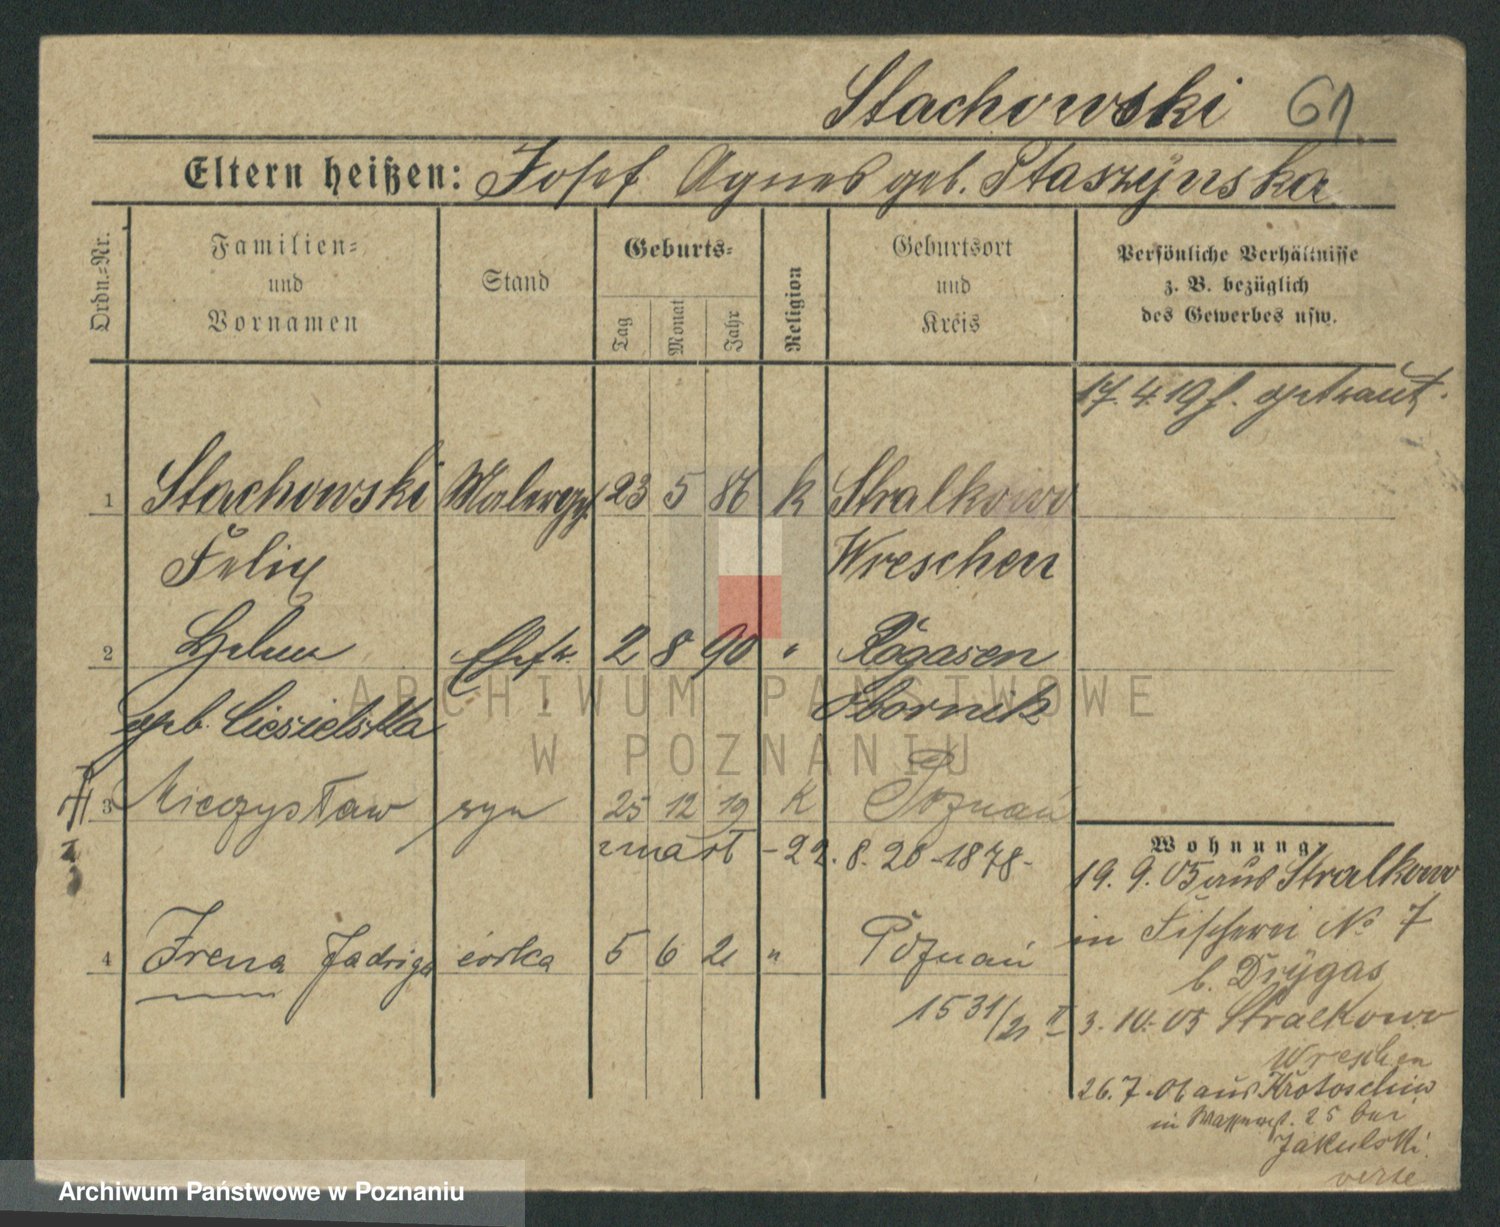 Stachowski 61
Eltern heißen: Josef Agnes geb. Staszÿnska
Ordn.-Nr.
Familien-
und
Vornamen
Stand
Geburts-
Tag
Monat
Jahr
Religion
Geburtsort
und
Kreis
Persönliche Verhältnisse
z. B. bezüglich
des Gewerbes usw.
17. 4. 19 h. getraut.
1 Stachowski Malergh 23 5 86 k Stralkowo
Felix Wreschen
2 Helene Ehefr. 2 8 90 " Rogasen
geb. Ciesielska Obornik
3 Mieczysław syn 25 12 19 k Poznań
zmarł - 22. 8. 20 - 1878 -
4 Irena Jadwiga córka 5 6 21 " Poznań
1531/21 II
Wohnung
19. 9. 05 aus Stralkowo
in Fischerei No 7
b. Drÿgas
3. 10. 05 Stralkowo
Wreschen
26. 7. 06 aus Krotoschin
in Wasserst. 25 bei
Jakulski
verte
ARCHIWUM PAŃSTWOWE
W POZNANIU
Archiwum Państwowe w Poznaniu